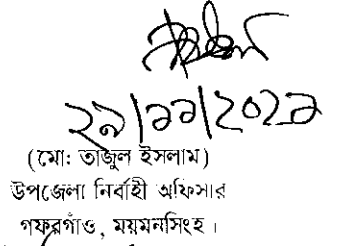 ২৯/১১/২০২১
(মো: তাজুল ইসলাম)
উপজেলা নির্বাহী অফিসার
গফরগাঁও, ময়মনসিংহ।